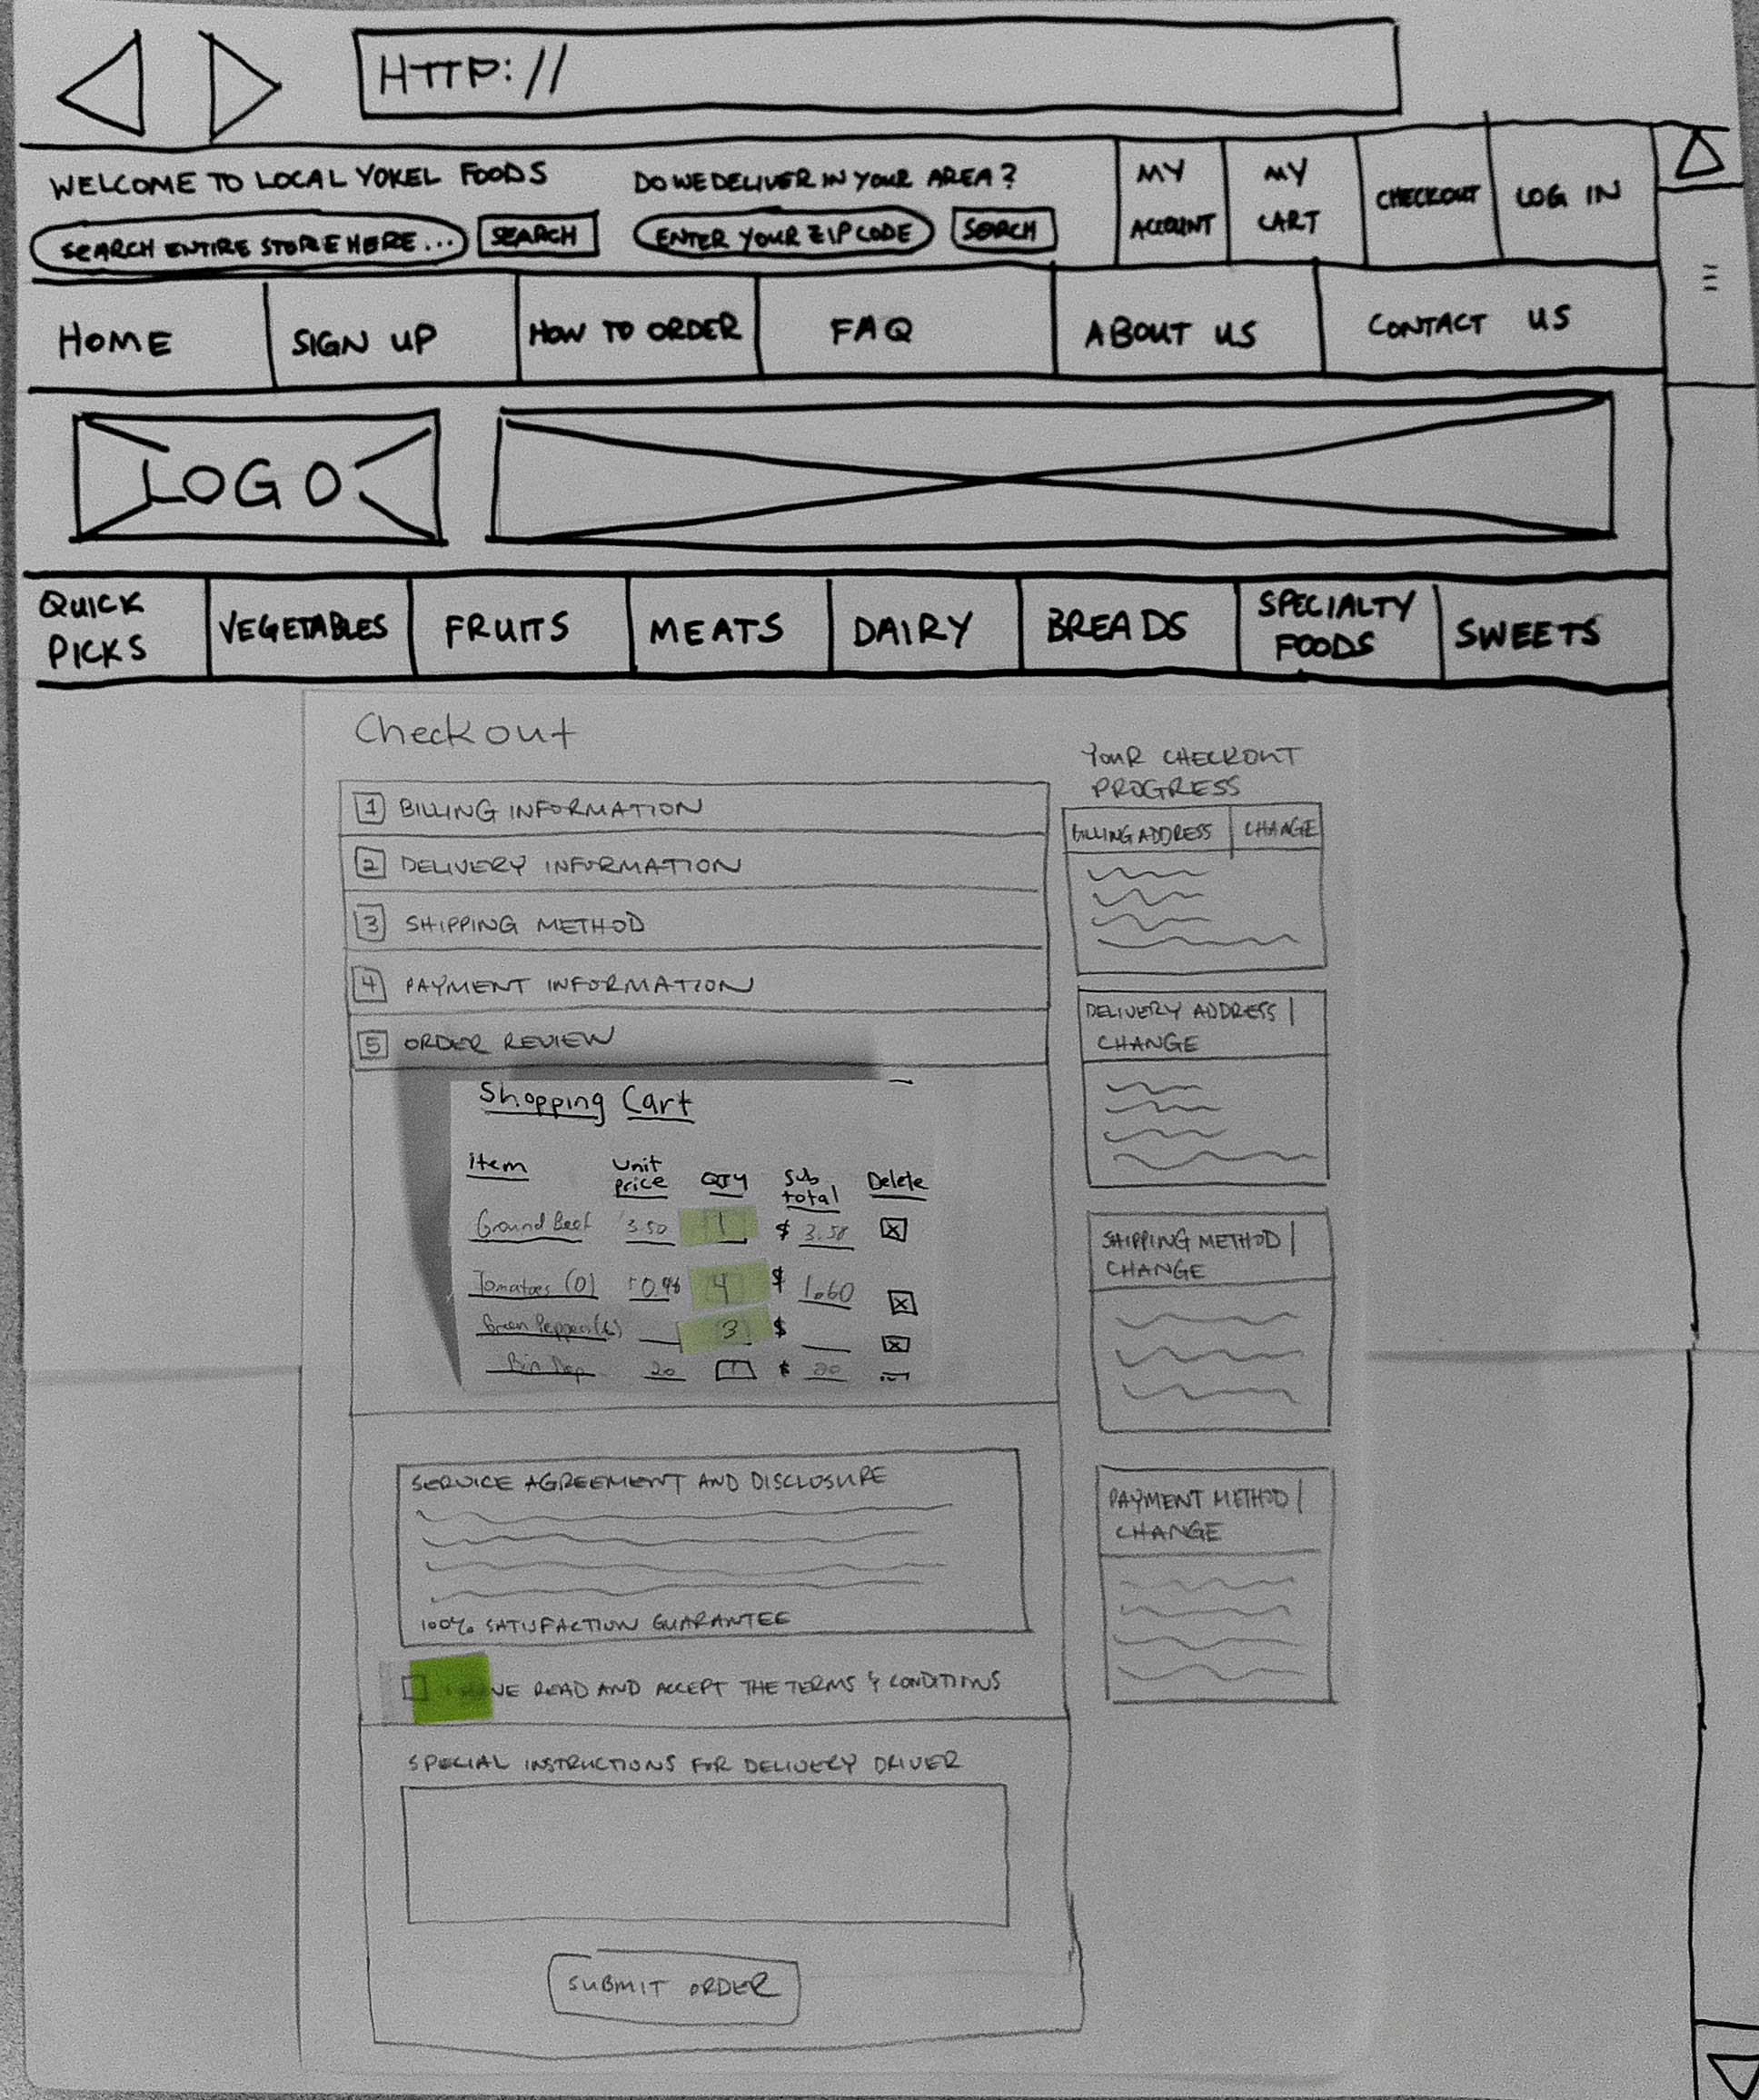 HTTP://
WELCOME TO LOCAL YOKEL FOODS
DO WE DELIVER IN YOUR AREA?
MY ACCOUNT
MY CART
CHECKOUT
LOG IN
SEARCH ENTIRE STORE HERE...
SEARCH
ENTER YOUR ZIP CODE
SEARCH
HOME
SIGN UP
HOW TO ORDER
FAQ
ABOUT US
CONTACT US
LOGO
QUICK PICKS
VEGETABLES
FRUITS
MEATS
DAIRY
BREADS
SPECIALTY FOODS
SWEETS
Checkout
1 BILLING INFORMATION
2 DELIVERY INFORMATION
3 SHIPPING METHOD
4 PAYMENT INFORMATION
5 ORDER REVIEW
Shopping Cart
item Unit price QTY Sub total Delete
Ground Beef 3.50 1 $ 3.50 X
Tomatoes 4 $ 1.60 X
Green Peppers 3 $ X
Bin Dep 20 1 $ 20
SERVICE AGREEMENT AND DISCLOSURE
100% SATISFACTION GUARANTEE
READ AND ACCEPT THE TERMS & CONDITIONS
SPECIAL INSTRUCTIONS FOR DELIVERY DRIVER
SUBMIT ORDER
YOUR CHECKOUT
PROGRESS
BILLING ADDRESS | CHANGE
DELIVERY ADDRESS |
CHANGE
SHIPPING METHOD |
CHANGE
PAYMENT METHOD |
CHANGE